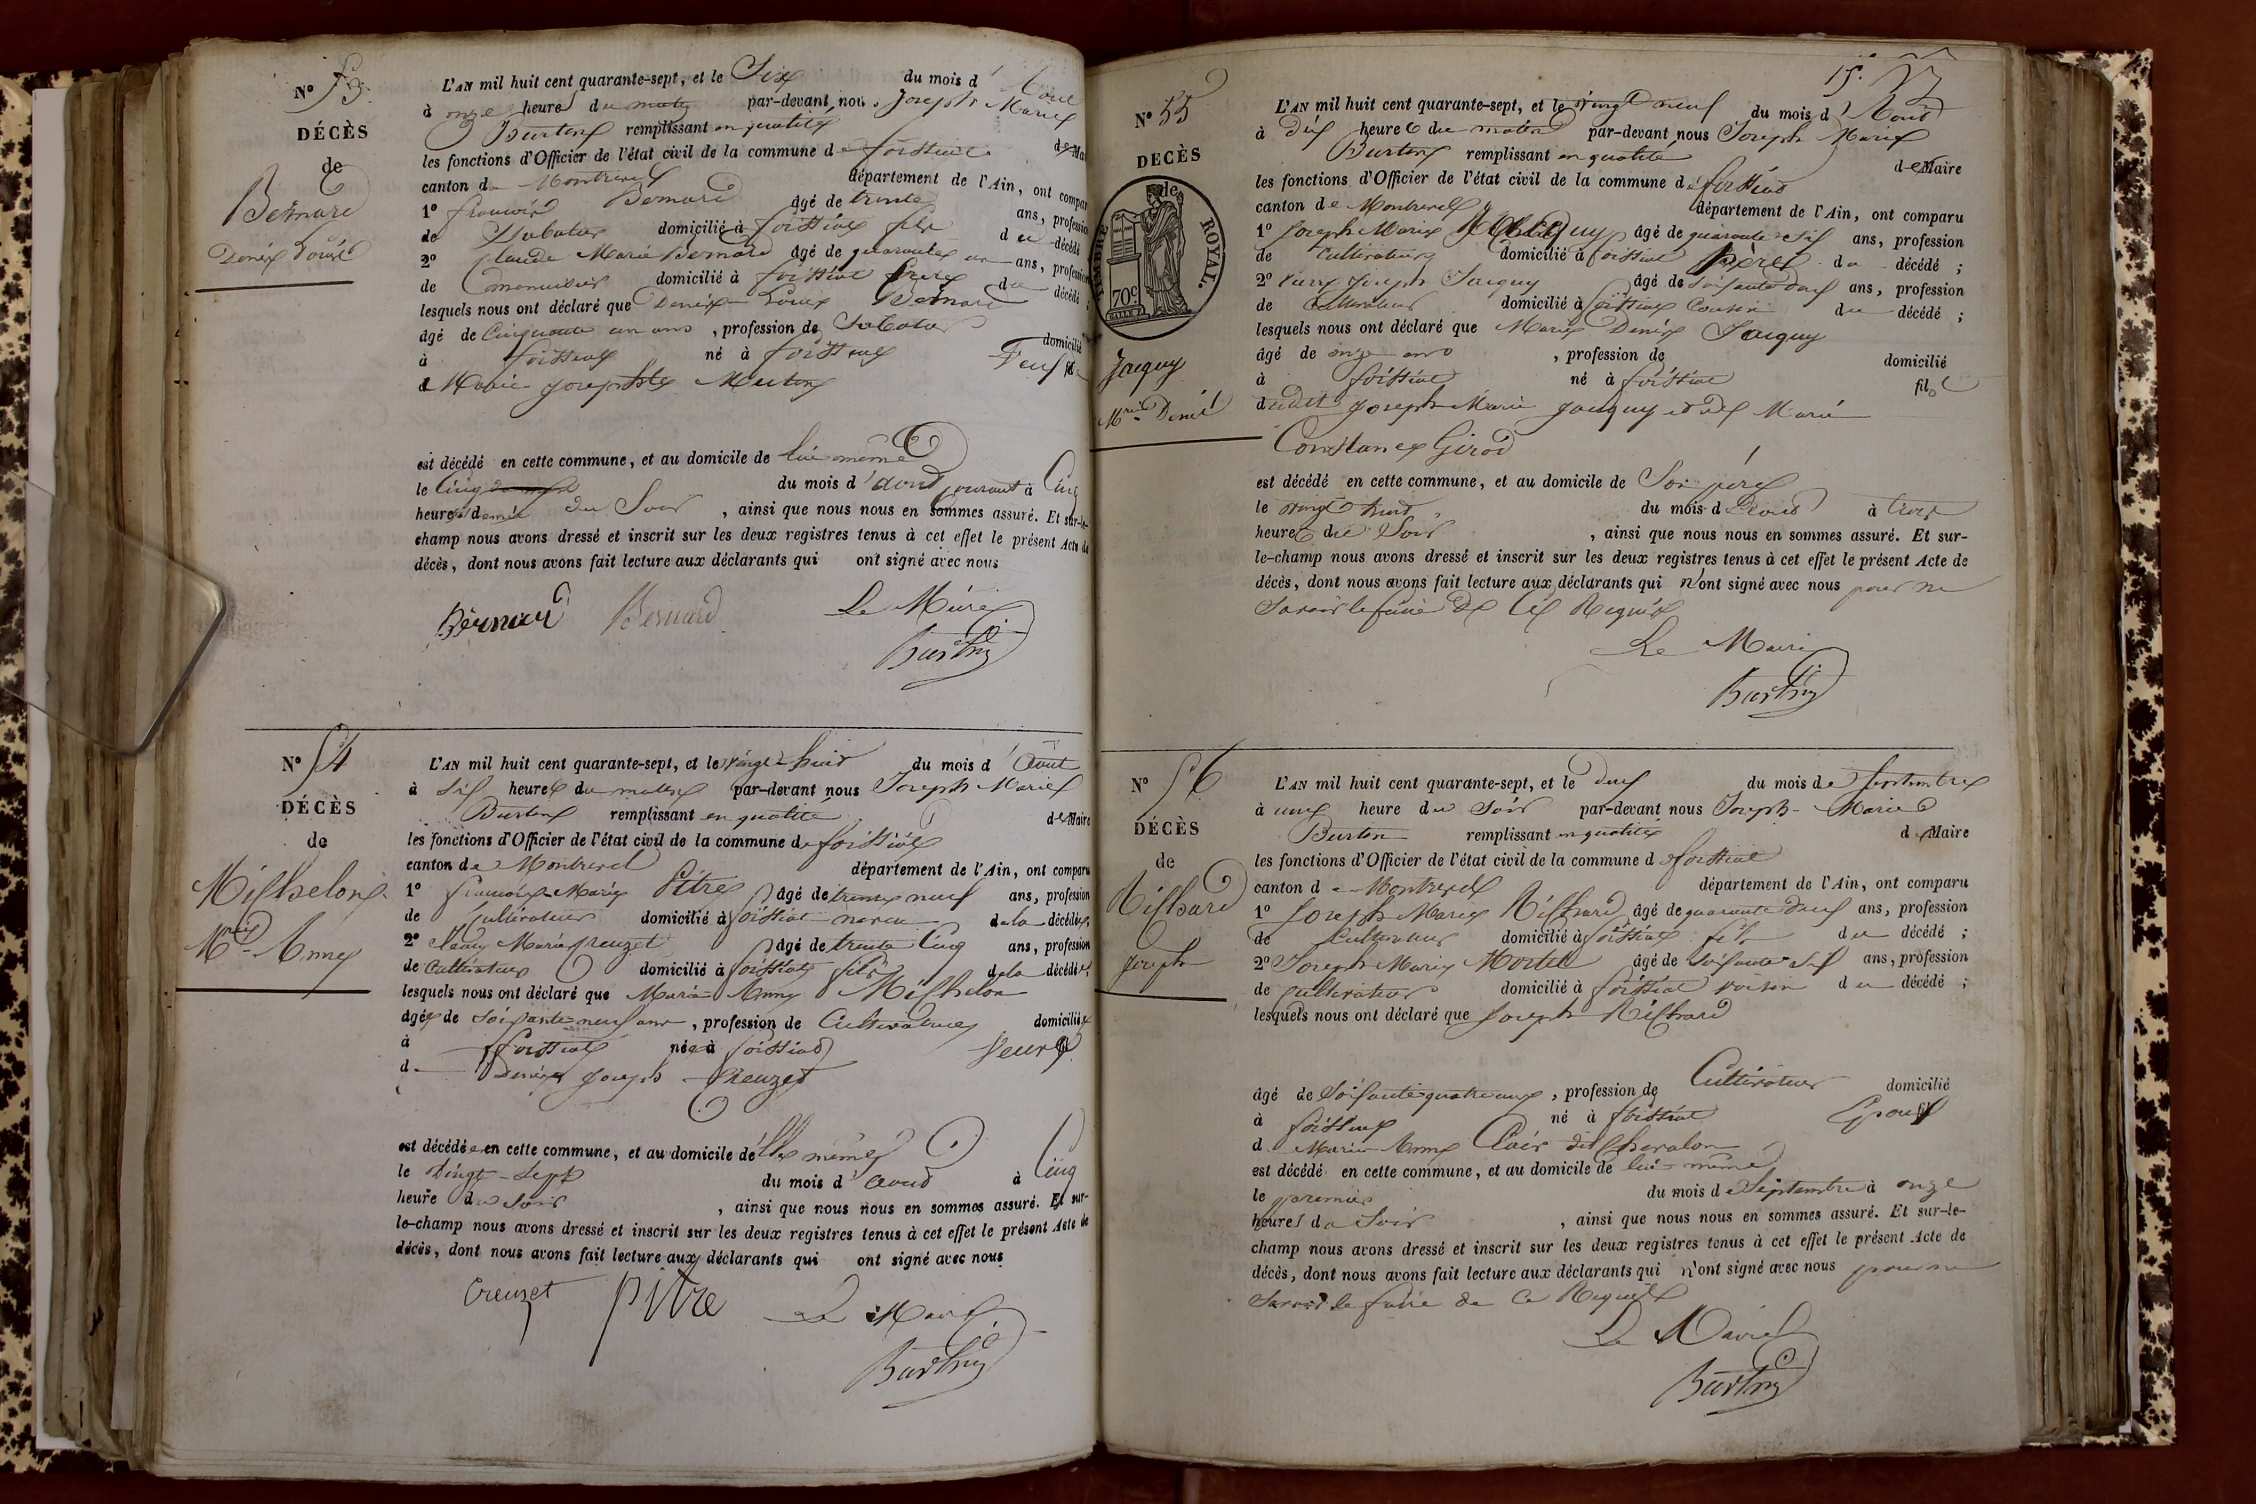 N° 53.
DÉCÈS
de
Bernard
Denis Louis
L'AN mil huit cent quarante-sept, et le Six du mois d'Août
à onze heures du matin par-devant nous Joseph Marie
Burtin remplissant en qualité de Mai
les fonctions d'Officier de l'état civil de la commune de foissiat
canton de Montrevel département de l'Ain, ont compar
1° françois Bernard âgé de trente ans, profession
de Sabotier domicilié à foissiat fils du décédé
2° Claude Marie Bernard âgé de quarante un ans, profession
de menuisier domicilié à foissiat frère du décédé ;
lesquels nous ont déclaré que Denis Louis Bernard
âgé de Cinquante un ans, profession de Sabotier domicilié
à foissiat né à foissiat veuf
de Marie Josephte
est décédé en cette commune, et au domicile de lui même
le Cinq du mois d'août courant à Cinq
heures demie du Soir, ainsi que nous nous en sommes assuré. Et sur-le-
champ nous avons dressé et inscrit sur les deux registres tenus à cet effet le présent Acte de
décès, dont nous avons fait lecture aux déclarants qui ont signé avec nous
Bernard Bernard Le Maire
Burtin
N° 54
DÉCÈS
de
Michelon
Mrie Anne
L'AN mil huit cent quarante-sept, et le vingt-huit du mois d'Août
à Six heures du matin par-devant nous Joseph Marie
Burtin remplissant en qualité de Maire
les fonctions d'Officier de l'état civil de la commune de foissiat
canton de Montrevel département de l'Ain, ont comparu
1° françois Marie Pitre âgé de trente neuf ans, profession
de Cultivateur domicilié à foissiat neveu de la décédée
2° Marie Creuzet âgé de trente Cinq ans, profession
de Cultivateur domicilié à foissiat fils de la décédée
lesquels nous ont déclaré que Marie Anne Michelon
âgée de Soixante neuf ans, profession de Cultivatrice domiciliée
à foissiat née à foissiat veuve
de Denis Joseph Creuzet
est décédée en cette commune, et au domicile d'Elle même
le Vingt-Sept du mois d'août à Cinq
heures du Soir, ainsi que nous nous en sommes assuré. Et sur-
le-champ nous avons dressé et inscrit sur les deux registres tenus à cet effet le présent Acte de
décès, dont nous avons fait lecture aux déclarants qui ont signé avec nous
Creuzet Pitre Le Maire
Burtin
N° 55
DÉCÈS
de
TIMBRE ROYAL.
70c
Jacquy
Mrie Denis
L'AN mil huit cent quarante-sept, et le vingt neuf du mois d'Août
à Dix heures du matin par-devant nous Joseph Marie
Burtin remplissant en qualité de Maire
les fonctions d'Officier de l'état civil de la commune de foissiat
canton de Montrevel département de l'Ain, ont comparu
1° Joseph Marie Jacquy âgé de quarante Six ans, profession
de Cultivateur domicilié à foissiat père du décédé ;
2° Joseph Jacquy âgé de Soixante Deux ans, profession
de Cultivateur domicilié à foissiat Cousin du décédé ;
lesquels nous ont déclaré que Marie Denis Jacquy
âgé de onze ans, profession de domicilié
à foissiat né à foissiat fils
dudit Joseph Marie Jacquy et de Marie
Constance Girod
est décédé en cette commune, et au domicile de Son père
le vingt huit du mois d'août à trois
heures du Soir, ainsi que nous nous en sommes assuré. Et sur-
le-champ nous avons dressé et inscrit sur les deux registres tenus à cet effet le présent Acte de
décès, dont nous avons fait lecture aux déclarants qui n'ont signé avec nous pour ne
Savoir le faire De Ce Requis
Le Maire
Burtin
N° 56
DÉCÈS
de
Richard
Joseph
L'AN mil huit cent quarante-sept, et le deux du mois de Septembre
à une heure du Soir par-devant nous Joseph-Marie
Burtin remplissant en qualité de Maire
les fonctions d'Officier de l'état civil de la commune de foissiat
canton de Montrevel département de l'Ain, ont comparu
1° Joseph Marie Richard âgé de quarante Deux ans, profession
de Cultivateur domicilié à foissiat fils du décédé ;
2° Joseph Marie Mortel âgé de Soixante Six ans, profession
de Cultivateur domicilié à foissiat voisin du décédé ;
lesquels nous ont déclaré que Joseph Richard
âgé de Soixante quatre ans, profession de Cultivateur domicilié
à foissiat né à foissiat Epoux
de Marie Anne Clair dit Chevalon
est décédé en cette commune, et au domicile de lui-même
le premier du mois de Septembre à onze
heures du Soir, ainsi que nous nous en sommes assuré. Et sur-le-
champ nous avons dressé et inscrit sur les deux registres tenus à cet effet le présent Acte de
décès, dont nous avons fait lecture aux déclarants qui n'ont signé avec nous pour ne
Savoir le faire de Ce Requis
Le Maire
Burtin